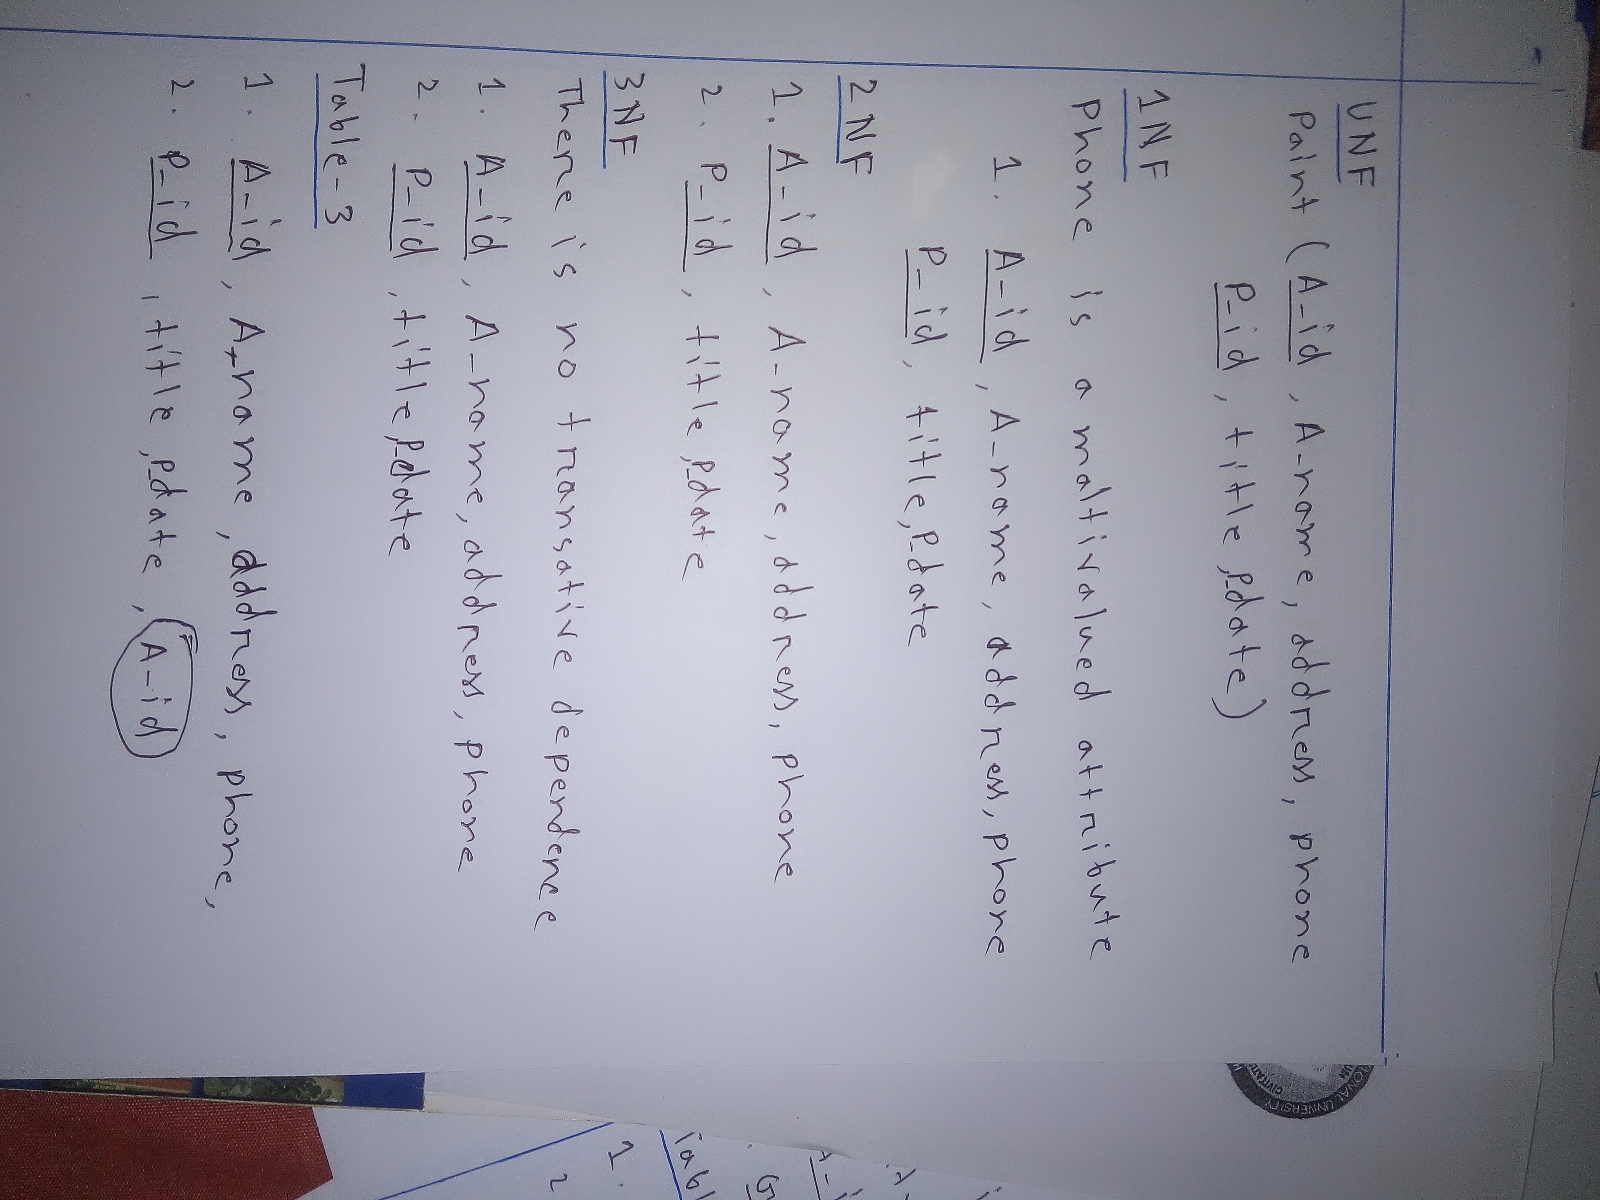 UNF
Paint (A_id, A_name, address, phone
P_id, title, P_date)
1NF
Phone is a maltivalued attribute
1. A_id, A_name, address, phone
P_id, title, P_date
2NF
1. A_id, A_name, address, phone
2. P_id, title, P_date
3NF
There is no transative dependence
1. A_id, A_name, address, phone
2. P_id, title, P_date
Table-3
1. A_id, A_name, address, phone,
2. P_id, title, P_date, A_id
IONAL UNIVERSITY
CIVITATI
1.
2
Tabl